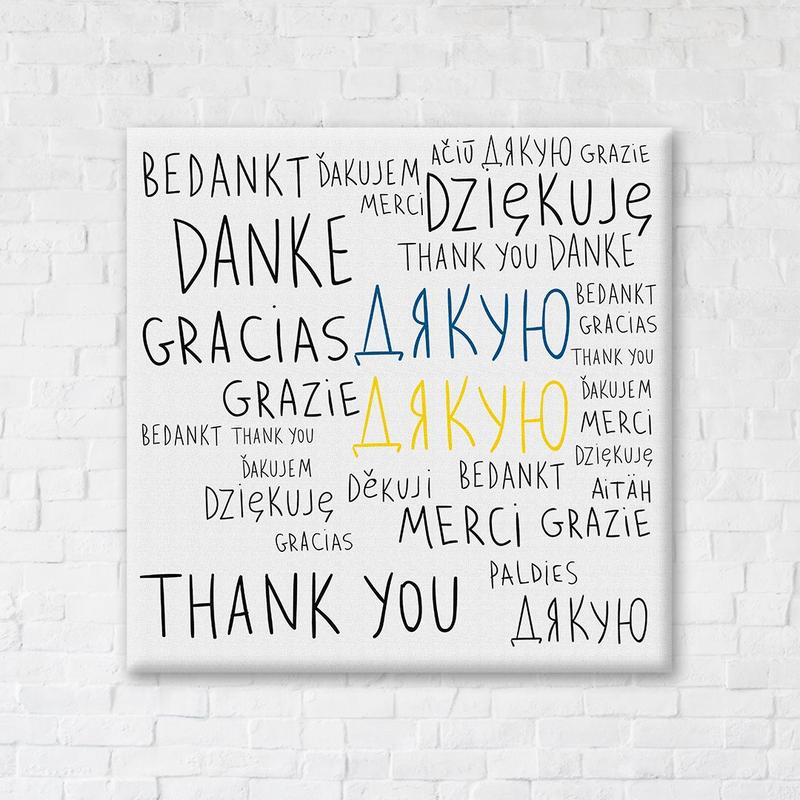 BEDANKT ĎAKUJEM AČIŪ ДЯКУЮ GRAZIE
MERCi DZięKUJę
DANKE THANK YOU DANKE
GRACiAS ДЯКУЮ BEDANKT
GRACiAS
THANK YOU
GRAZiE ДЯКУЮ ĎAKUJEM
MERCi
BEDANKT THANK YOU
DZięKUJę
ĎAKUJEM DěKUJi BEDANKT AiTÄH
DZięKUJę
MERCi GRAZiE
GRACiAS
THANK YOU PALDiES
ДЯКУЮ